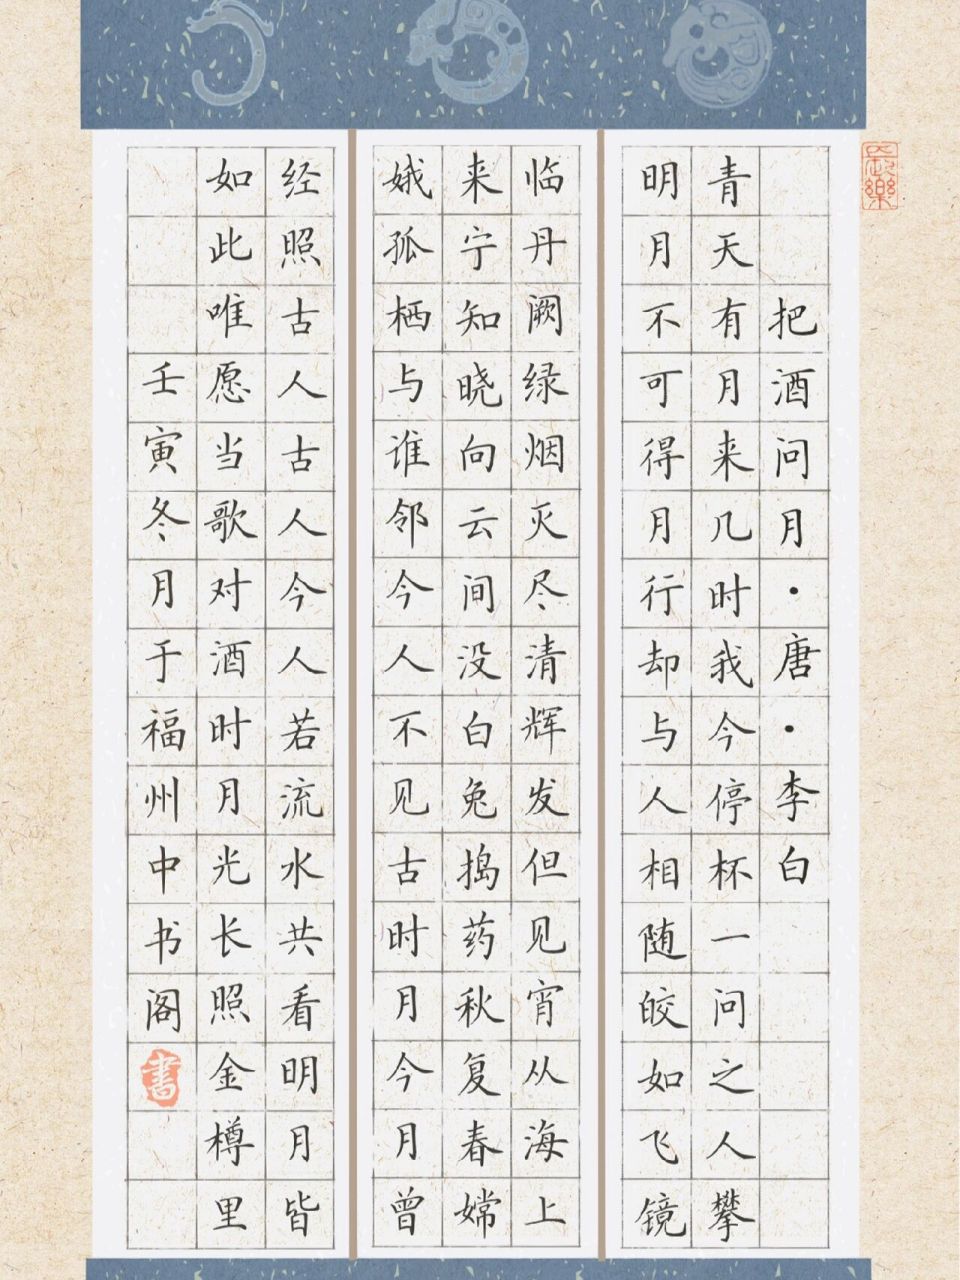 把酒问月·唐·李白
青天有月来几时我今停杯一问之人攀
明月不可得月行却与人相随皎如飞镜
临丹阙绿烟灭尽清辉发但见宵从海上
来宁知晓向云间没白兔捣药秋复春嫦
娥孤栖与谁邻今人不见古时月今月曾
经照古人古人今人若流水共看明月皆
如此唯愿当歌对酒时月光长照金樽里
壬寅冬月于福州中书阁
書
長樂